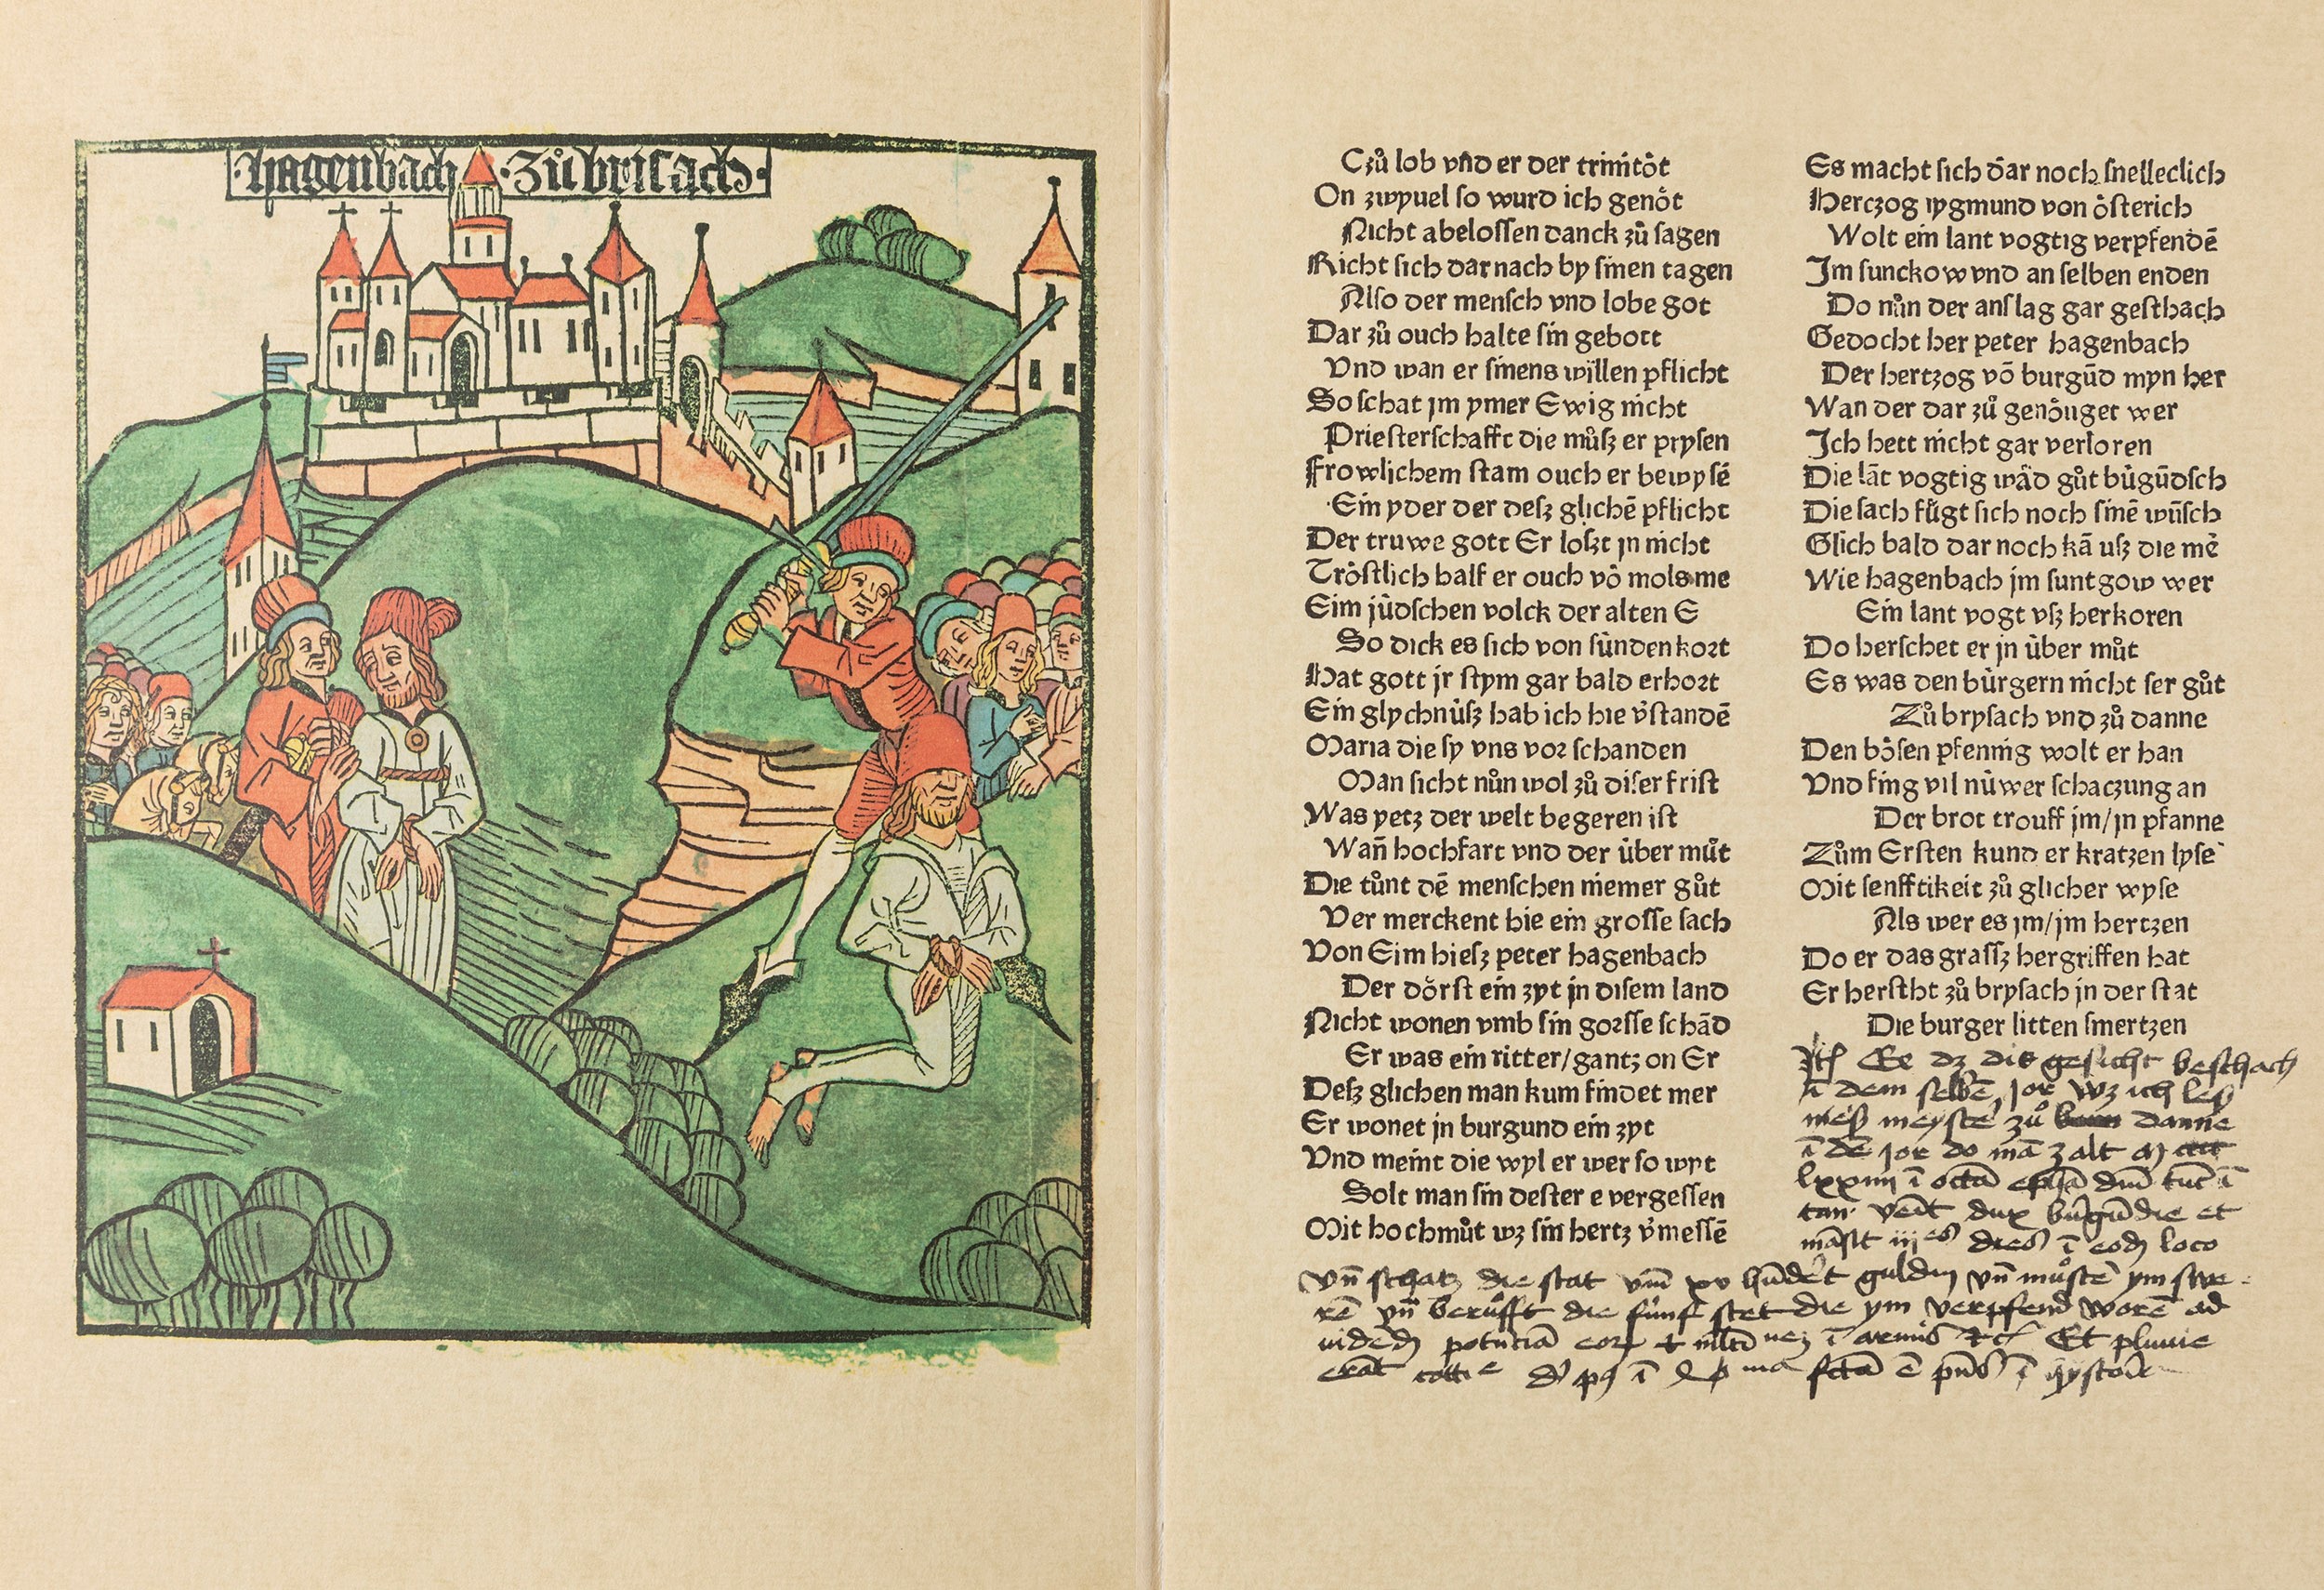 hagenbach · zů brisach ·
Czů lob vñd er der trinitòt
On zwyuel so wurd ich genòt
Nicht abelossen danck zů sagen
Richt sich dar nach by sinen tagen
Also der mensch vnd lobe got
Dar zů ouch halte sin gebott
Vnd wan er sinens willen pflicht
So schat jm ymer Ewig nicht
Priesterschafft die můsz er prysen
Frowlichem stam ouch er bewysē
Ein yder der desz glichē pflicht
Der truwe gott Er loszt jn nicht
Tròstlich half er ouch vò mols me
Eim jůdschen volck der alten E
So dick es sich von sünden kort
Hat gott jr stym gar bald erhort
Ein glychnůsz hab ich hie v̊standē
Maria die sy vns vor schanden
Man sicht nůn wol zů diser frist
Was yetz der welt begeren ist
Wañ hochfart vnd der über můt
Die tůnt dē menschen niemer gůt
Ver merckent hie ein grosse sach
Von Eim hiesz peter hagenbach
Der dòrst ein zyt jn disem land
Nicht wonen vmb sin gorsse schād
Er was ein ritter/gantz on Er
Desz glichen man kum findet mer
Er wonet jn burgund ein zyt
Vnd meint die wyl er wer so wyt
Solt man sin dester e vergessen
Mit hochmůt wz sin hertz v̊messē
Es macht sich dar noch snelleclich
Herczog sygmund von òsterich
Wolt ein lant vogtig verpfendē
Jm sunckow vnd an selben enden
Do nůn der anslag gar gesthach
Gedocht her peter hagenbach
Der hertzog vō burgūd myn her
Wan der dar zů genòuget wer
Ich hett nicht gar verloren
Die lāt vogtig wād gůt bůgūdsch
Die sach fůgt sich noch sinē wūsch
Glich bald dar noch kā usz die mē
Wie hagenbach jm suntgow wer
Ein lant vogt vsz herkoren
Do herschet er jn über můt
Es was den bürgern nicht ser gůt
Zů brysach vnd zů danne
Den bòsen pfennig wolt er han
Vnd fing vil nüwer schaczung an
Der brot trouff jm/jn pfanne
Zům Ersten kund er kratzen lyse
Mit senfftikeit zů glicher wyse
Als wer es jm/jm hertzen
Do er das grassz hergriffen hat
Er herstht zů brysach jn der stat
Die burger litten smertzen
Ee dz dis gesicht beschach
ī dem selbē jor wz ich
meyster zů danne
ī dē jor do mā zalt
lxxiiii ī dnī
venit dux būgūdie et
māsit dies ī eodē loco
vn̄ schatz die stat vm̄ xv hūdert guldin vn̄ můstē ym swe
rē vn̄ berůfft die fünf stet die ym verpfend worē ad
vidēdū potētiā ī armis Et pluuie